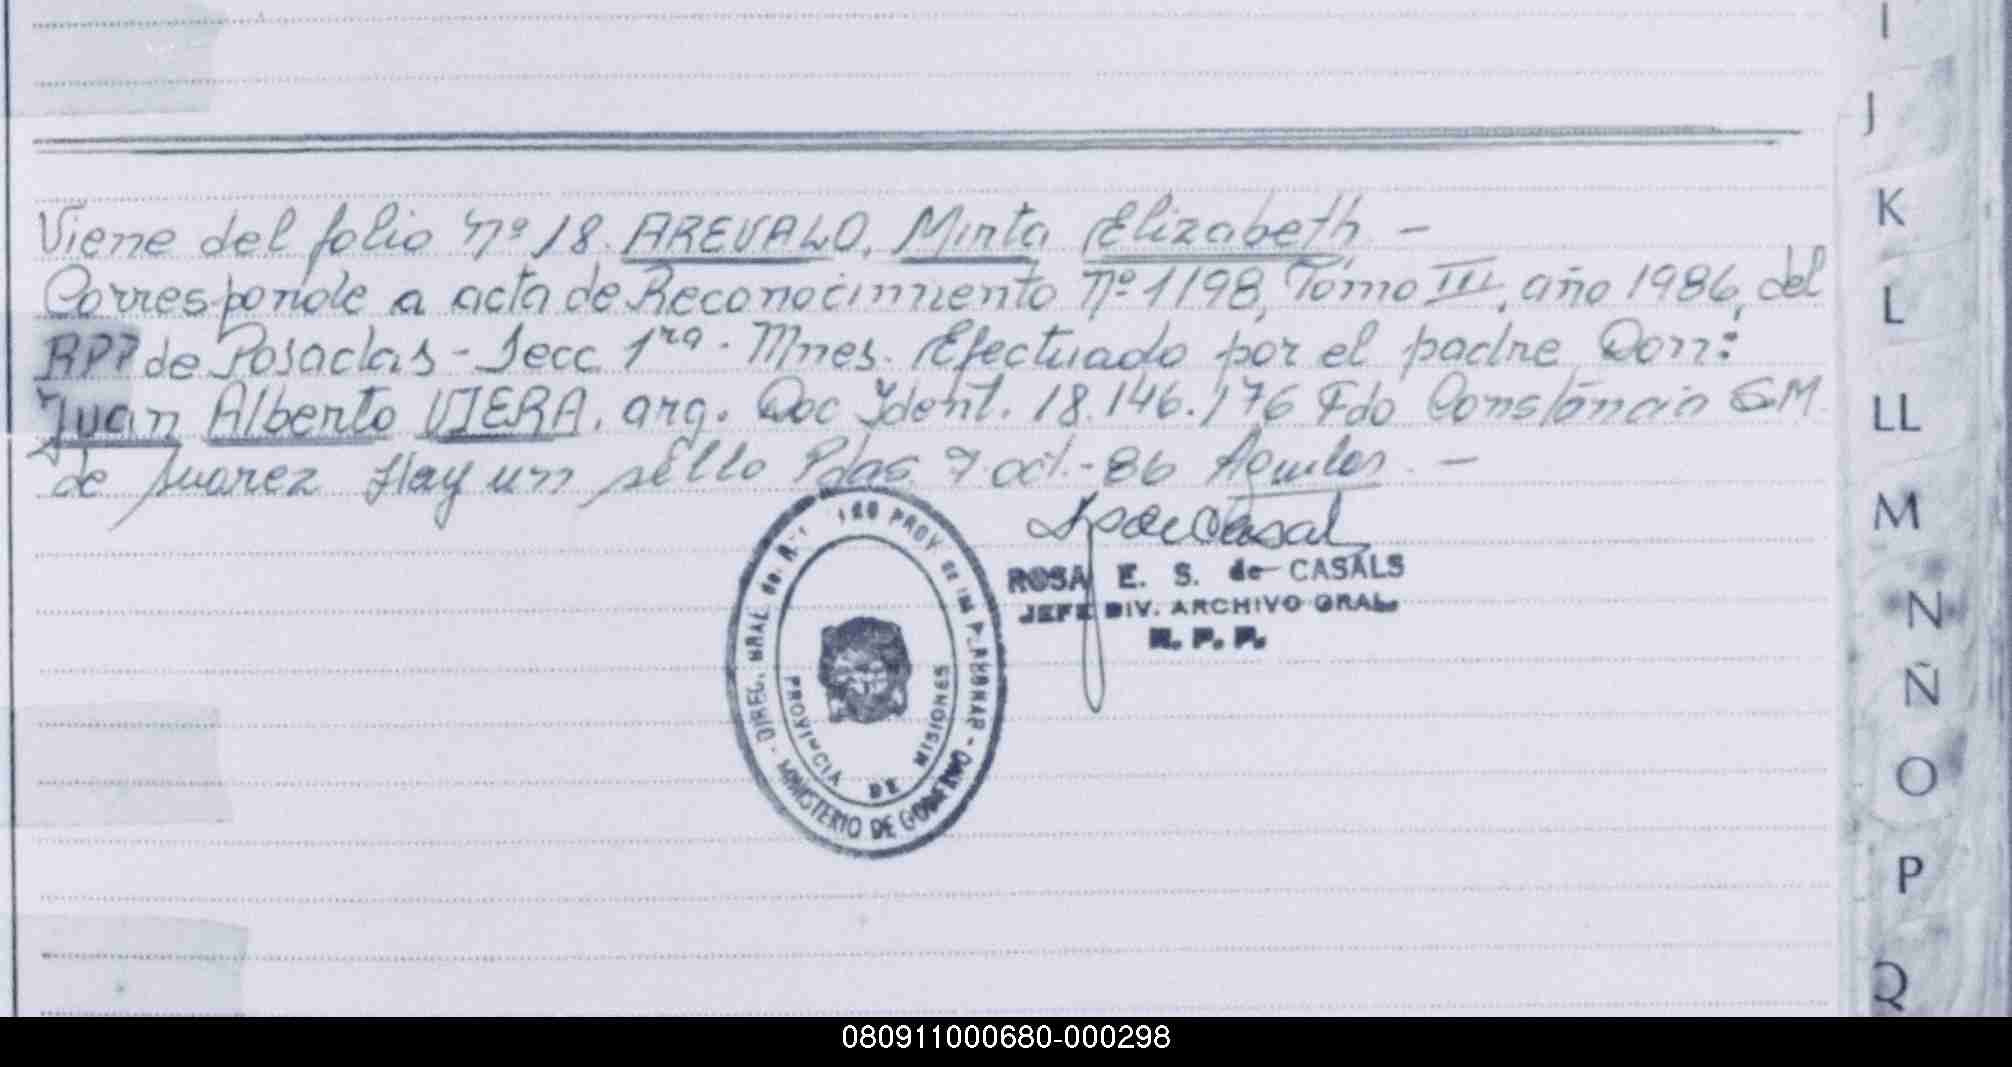 Viene del folio Nº 18. AREVALO, Mirta Elizabeth. -
Corresponde a acta de Reconocimiento Nº 1198, Tomo III, año 1986, del
RPP de Posadas - Secc 1ra. Mnes. Efectuado por el padre Don:
Juan Alberto VIERA, arg. Doc Ident. 18.146.176 Fdo Constancia G.M.
de Suarez Hay un sello Pdas. 7. oct.- 86 Aguilar. -
ROSA E. S. de CASALS
JEFE DIV. ARCHIVO GRAL.
R. P. P.
DIREC. GRAL de PROV de las
MINISTERIO DE GOBIERNO
PROVINCIA DE MISIONES
I
J
K
L
LL
M
N
Ñ
O
P
Q
080911000680-000298